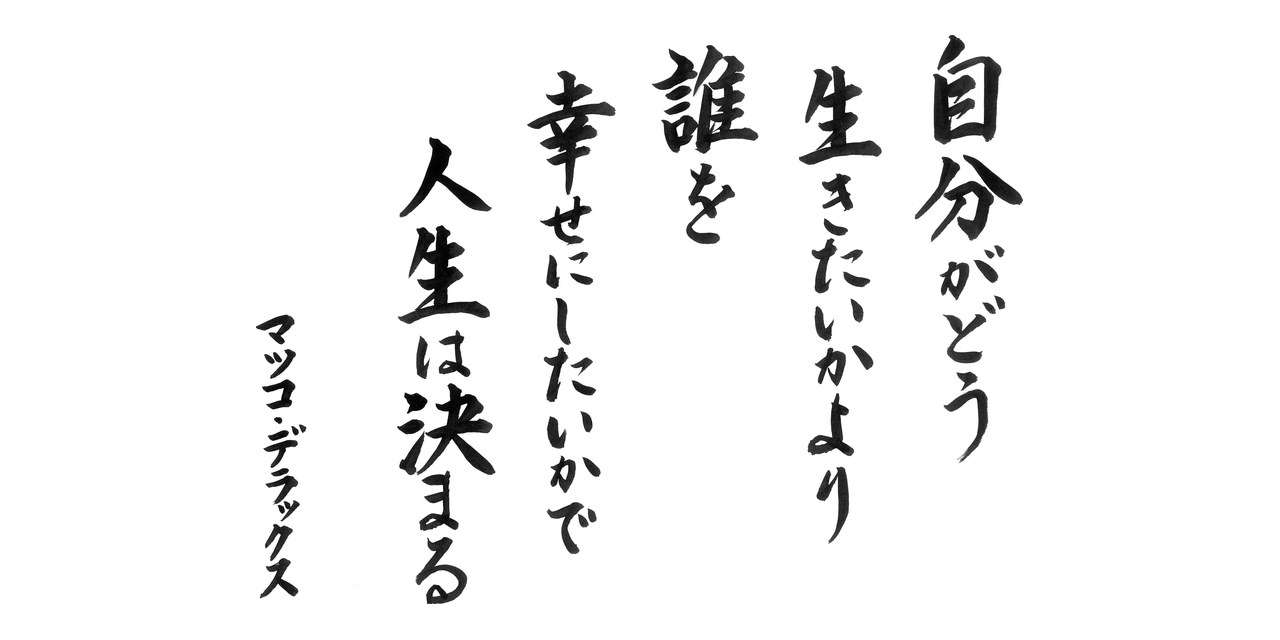 自分がどう
生きたいかより
誰を
幸せにしたいかで
人生は決まる
マツコ・デラックス